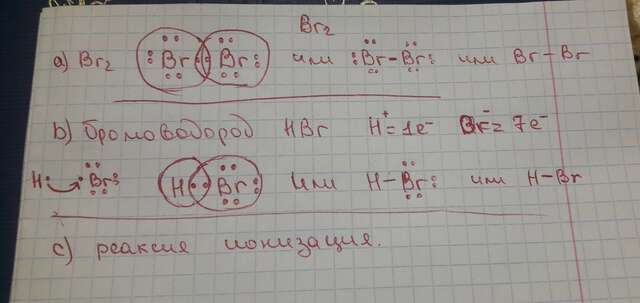 Br₂
a) Br₂ :Br:Br: или :Br-Br: или Br-Br
b) бромоводород HBr H⁺=1e⁻ Br⁻=7e⁻
H· ·Br: H:Br: или H-Br: или H-Br
c) реаксия ионизация.